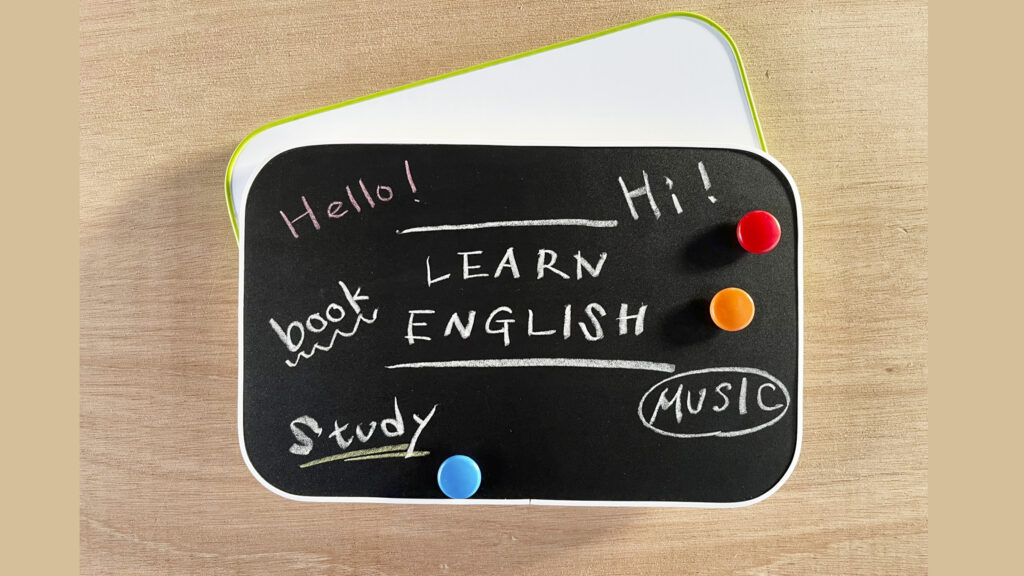 Hello!
Hi!
LEARN
ENGLISH
book
MUSIC
Study